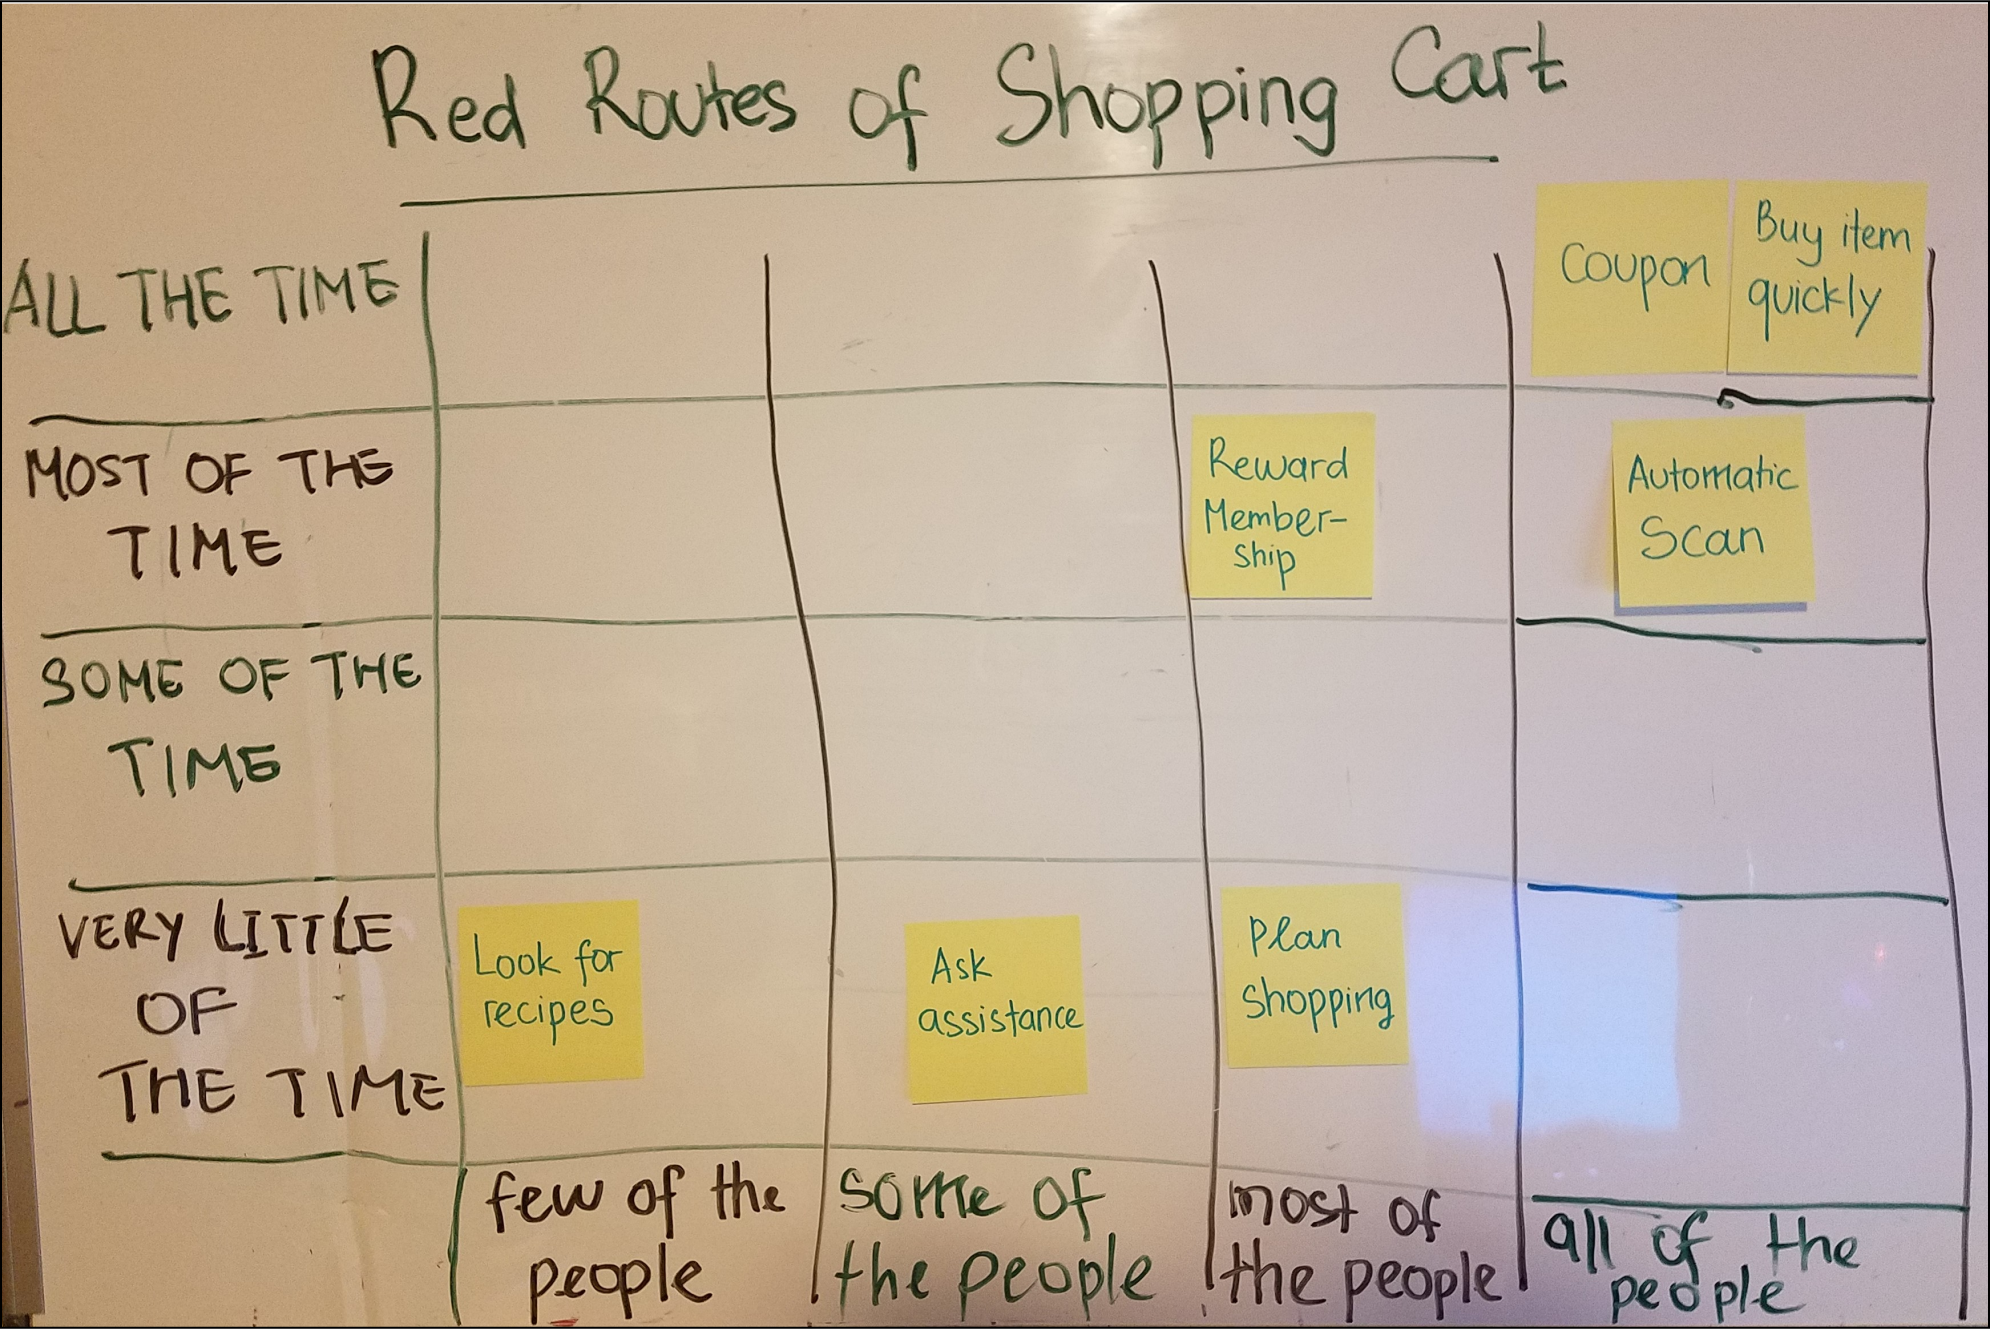 Red Routes of Shopping Cart
ALL THE TIME
Coupon
Buy item
quickly
MOST OF THE
TIME
Reward
Member-
ship
Automatic
Scan
SOME OF THE
TIME
VERY LITTLE
OF
THE TIME
Look for
recipes
Ask
assistance
Plan
Shopping
few of the
people
some of
the people
most of
the people
all of the
people